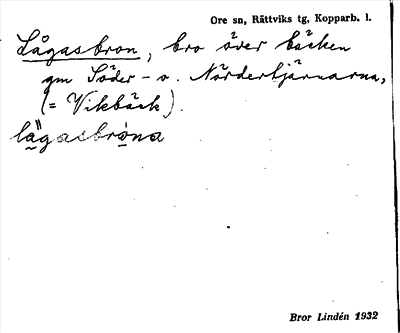 Ore sn, Rättviks tg, Kopparb. l.
Lågasbron, bro över bäcken
gm Söder- o. Nordertjärnarna,
(= Vikbäck).
lägasbròna
Bror Lindén 1932